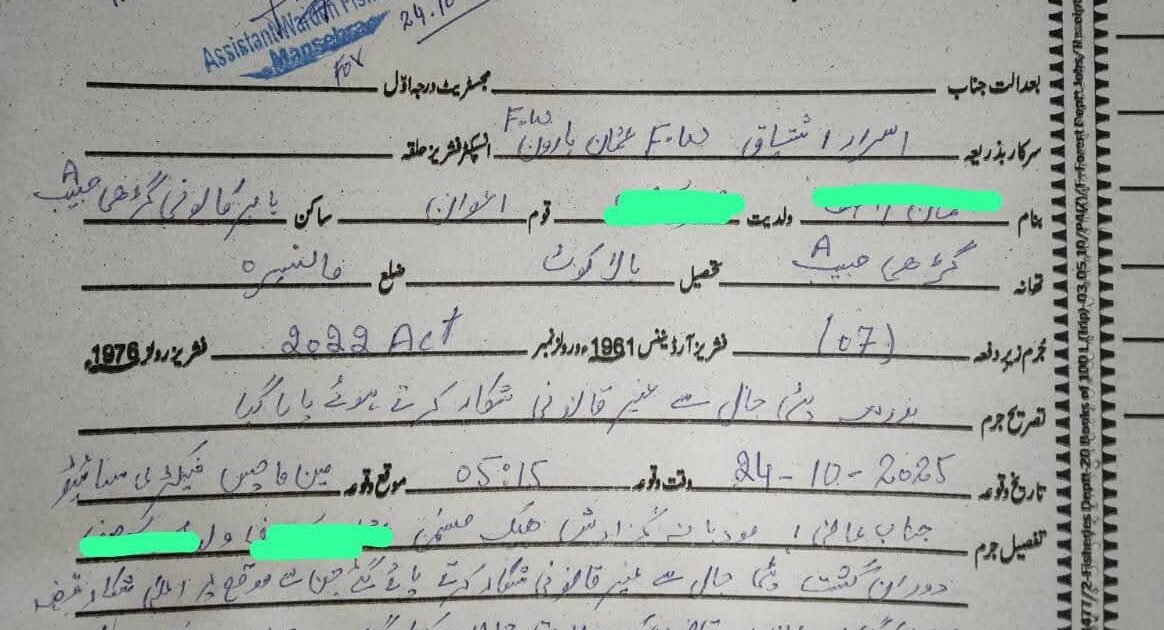 24.10
Assistant Warden Fish
Mansehra
For
بعدالت جناب مجسٹریٹ درجہ اوّل
سرکار بذریعہ اسرار اشتیاق F.W عثمان ہارون F.W انسپکٹر فشریز حلقہ
بنام ولدیت قوم اعوان ساکن کالونی گڑھی حبیب A
تھانہ گڑھی حبیب A تحصیل بالاکوٹ ضلع مانسہرہ
جُرم زیر دفعہ (07) فشریز آرڈیننس 1961ء و رولز نمبر 2022 Act فشریز رولز 1976ء
تصریح جرم جال سے غیر قانونی شکار کرتے ہوئے پایا گیا
تاریخ وقوعہ 24-10-2025 وقت وقوعہ 05:15 موقع وقوعہ ماچس فیکٹری
تفصیل جرم جناب عالی! مودبانہ گزارش ھیکہ مسمی
دوران گشت جال سے غیر قانونی شکار کرتے پائے گئے جن سے موقع پر شکار قبضہ
477/2-Fisheries Deptt-20 Books of 100 L (Trip)-03.05.10/PA(Z)/(F. Forest Deptt Jobs/Receipt